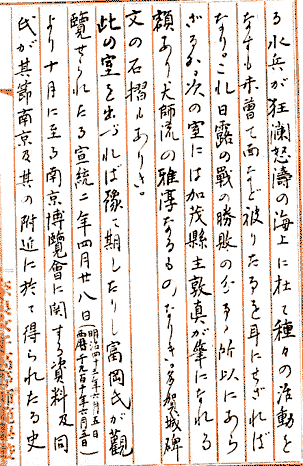 る水兵が狂瀾怒濤の海上に在て種々の活動を
なすも未曽て面など被りたるを耳にせざれば
なり、これ日露の戰の勝敗の分るゝ所以にあら
ざるか、次の室には加茂縣主敦真が筆になれる
額あり、大師流の雅淳なるものなりき、多賀城碑
文の石摺もありき。
此の室を出づれば豫て期したりし富岡氏が觀
覽せられたる宣統二年四月廿八日(明治四十三年六月五日 西暦千九百十年六月五日)
より十月に至る南京博覽會に関する資料及同
氏が其節南京及其の附近に於て得られたる史